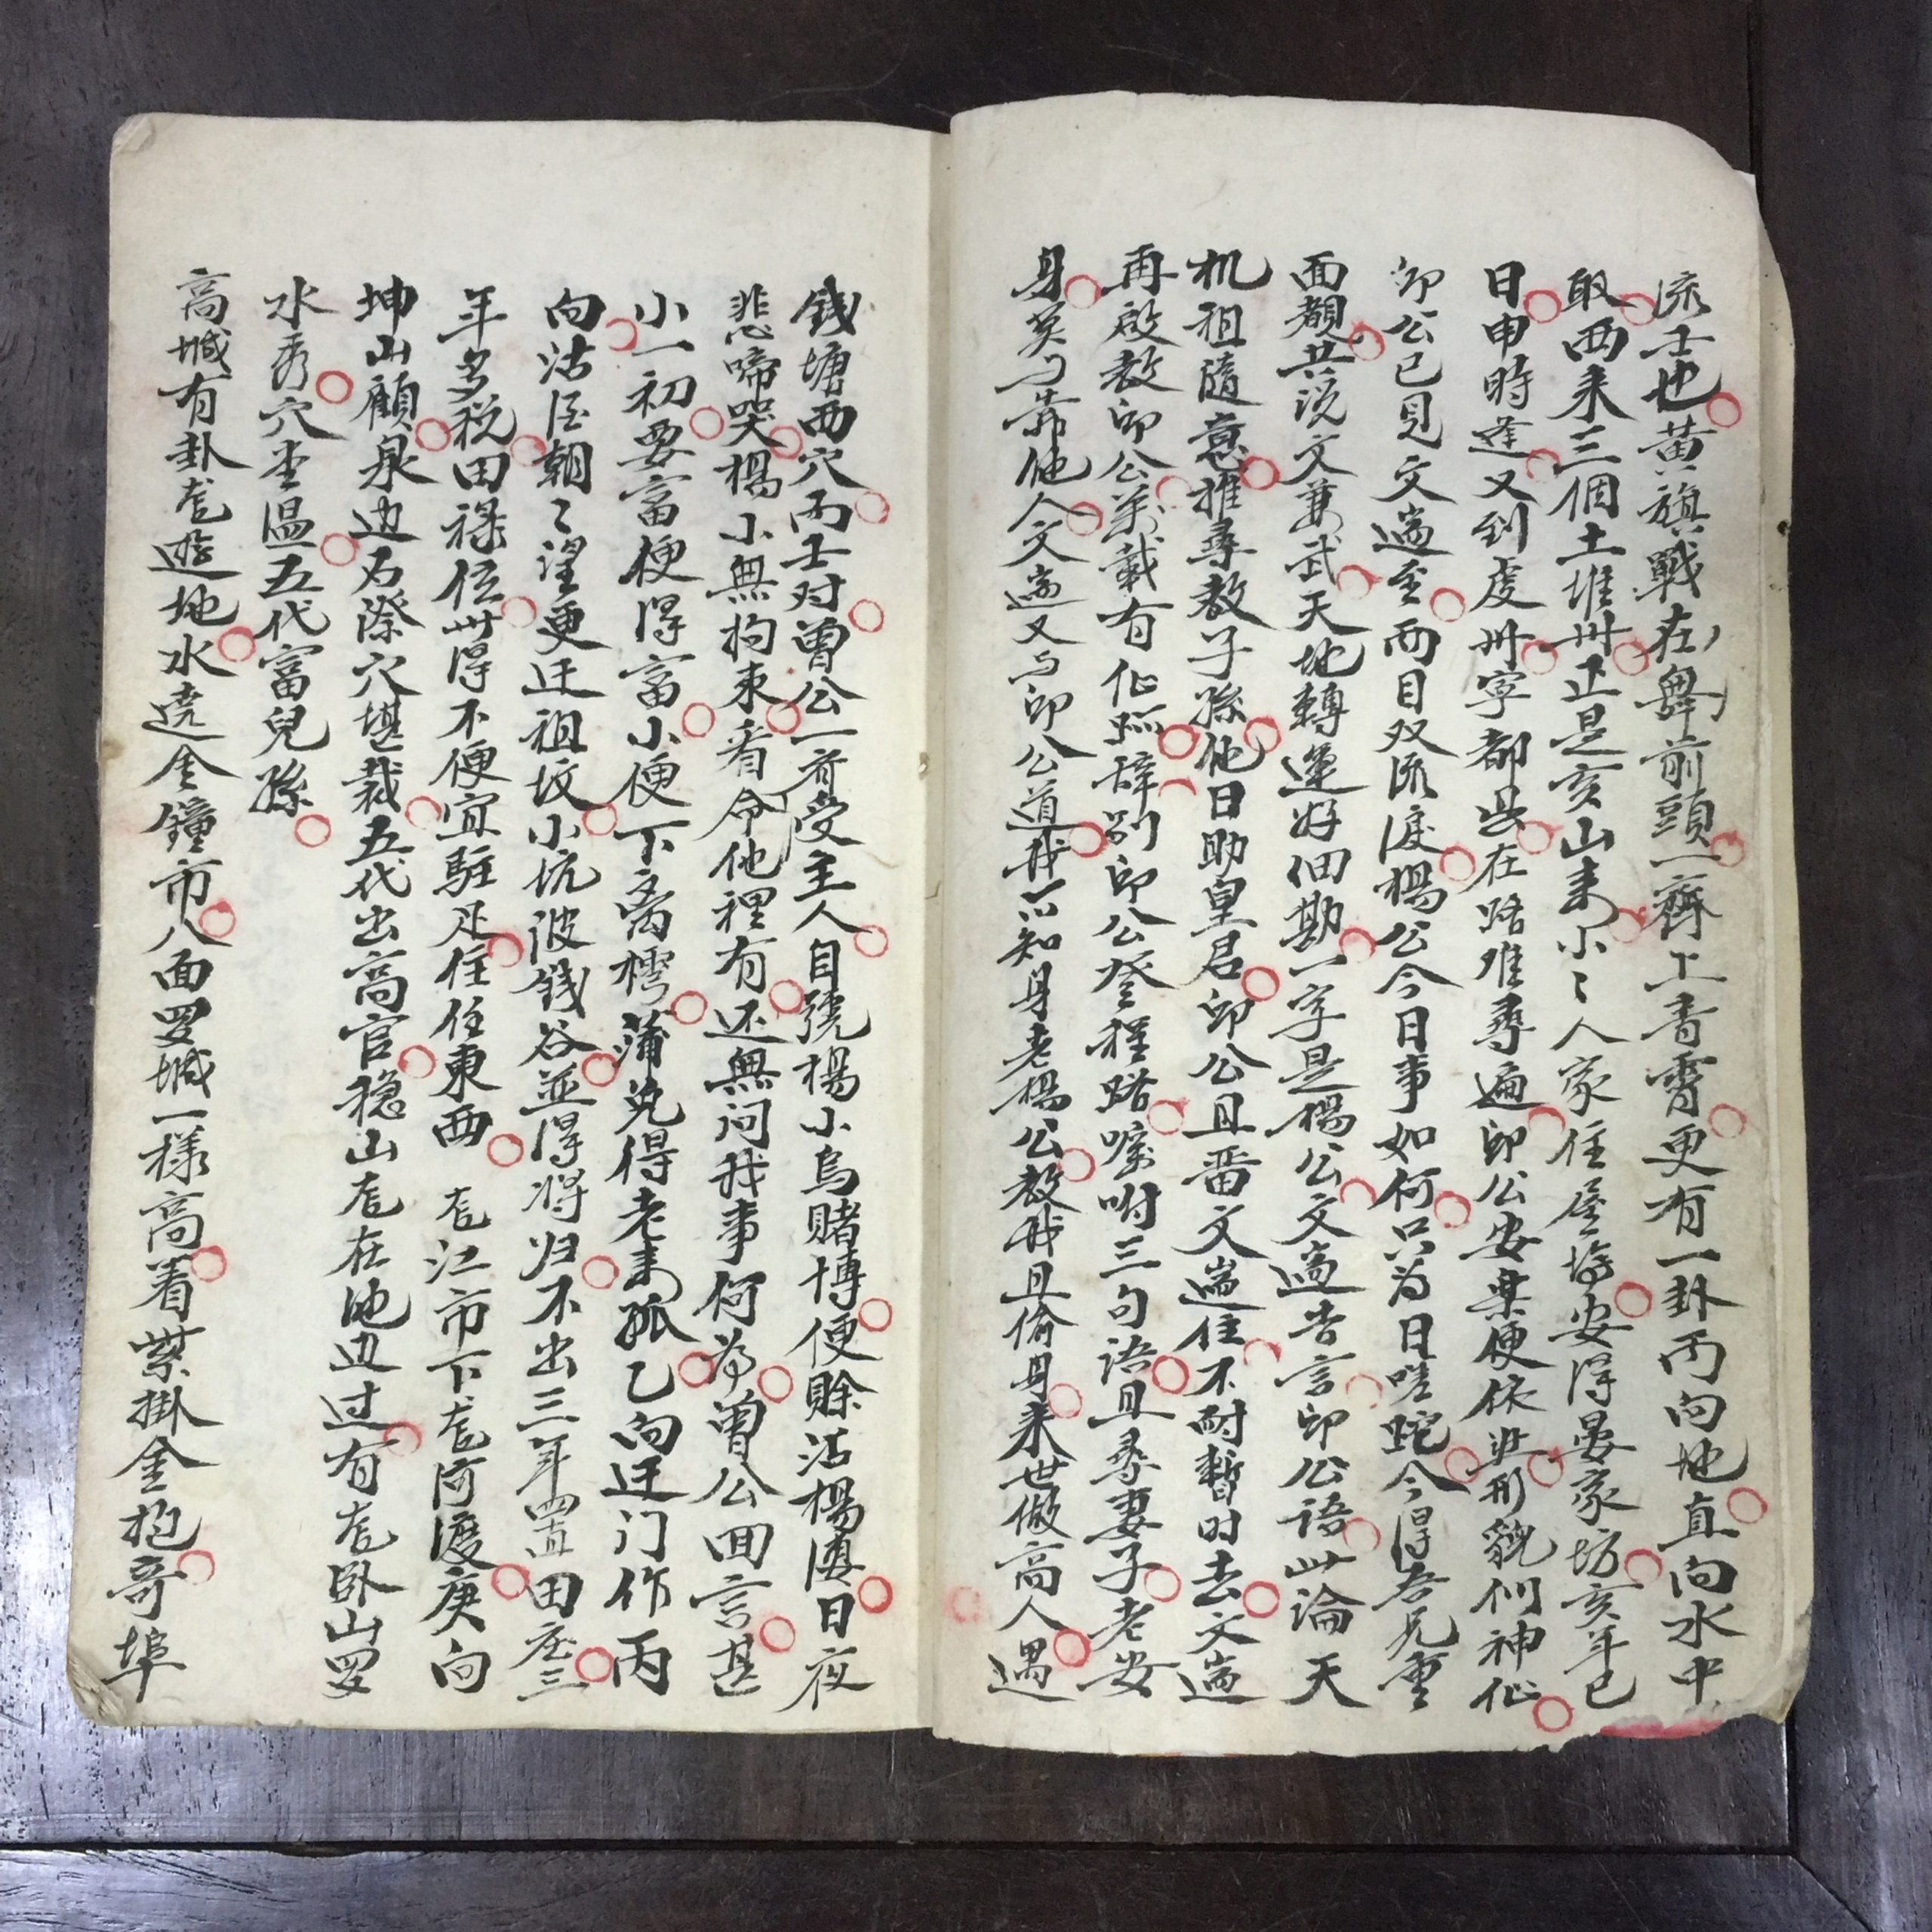 流士也黃旗戰在舞前頭一齊上青霄更有一卦丙向地直向水中
取西来三個土堆卅正是亥山来小〻人家住屋塲安得晏家坊亥年巳
日申時逢又到虔州寧都县在路难尋遍卯公安樂便依非形貌似神仙
卯公已見文遄至両目双流淚楊公今日事如何只为日嗟跎今得吾兄重
面覩共说文兼武天地轉運好佃勘一字是楊公文遄告言卯公語此論天
机祖随意推尋教子孫他日助皇君卯公且畱文遄住不耐暫时去文遄
再啟教卯公業載有仙踪辞别卯公登程路嘱咐三句语且尋妻子老安
身莫与靠他人文遄又与卯公道我只知身老楊公教我且偷身来世做高人遇
錢塘西穴丙壬对曾公一斉受主人自號楊小烏賭博便賒沽楊㴠日夜
悲啼哭楊小無拘束看命他裡有还無问我事何為曾公回言甚
小一初要富便得富小便下离樗蒲免得老来孤乙向廷门作丙
向沽启朝〻望更迁祖坟小坑波錢谷並得将归不出三年置田庄三
年多税田禄位此得不便宜駐足住住東西 龙江市下龙河渡庚向
坤山顧泉边石漈穴堪裁五代出高官穏山龙在池边过有龙卧山罗
水秀穴坐温五代富兒孫
高城有卦龙遊地水遶金鐘市八面罗城一樣高着紫掛金袍哥埠